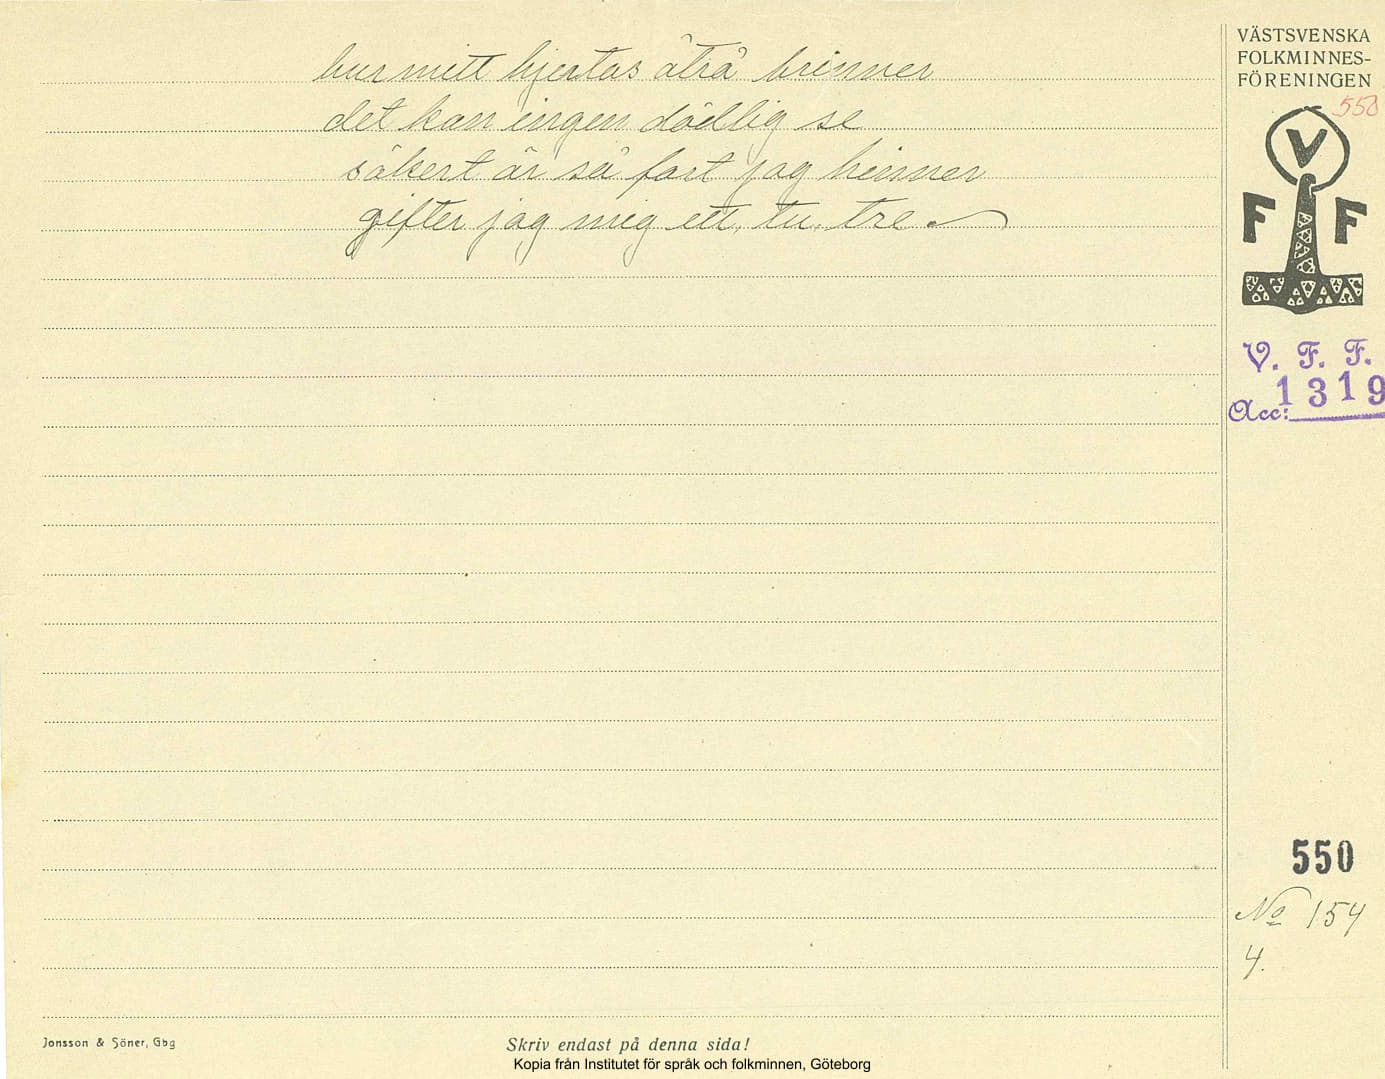 hur mitt hjertas åtrå brinner
det kan ingen dödlig se
säkert är så fort jag hinner
gifter jag mig ett, tu, tre.
VÄSTSVENSKA
FOLKMINNES-
FÖRENINGEN
550
V
F F
V. F. F.
1319
Acc:
550
No 154
4.
Jonsson & Söner, Gbg
Skriv endast på denna sida!
Kopia från Institutet för språk och folkminnen, Göteborg